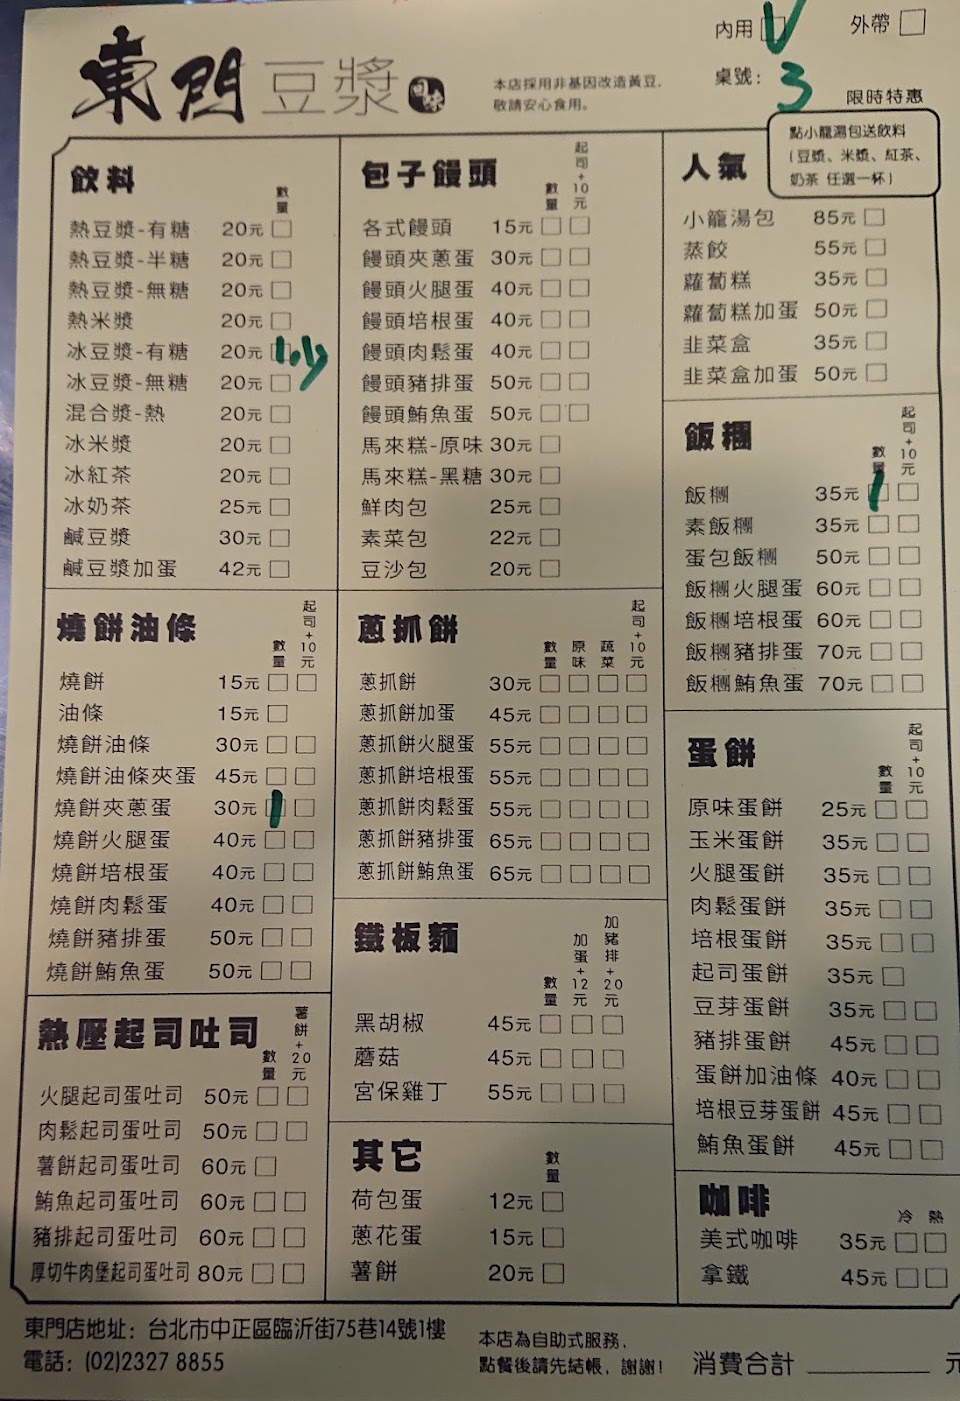 東門豆漿
本店採用非基因改造黃豆，
敬請安心食用。
內用 V 外帶
桌號： 3
限時特惠
點小籠湯包送飲料
(豆漿、米漿、紅茶、
奶茶 任選一杯)
飲料 數量
熱豆漿-有糖 20元
熱豆漿-半糖 20元
熱豆漿-無糖 20元
熱米漿 20元
冰豆漿-有糖 20元 1少
冰豆漿-無糖 20元
混合漿-熱 20元
冰米漿 20元
冰紅茶 20元
冰奶茶 25元
鹹豆漿 30元
鹹豆漿加蛋 42元
燒餅油條 數量 起司+10元
燒餅 15元
油條 15元
燒餅油條 30元
燒餅油條夾蛋 45元
燒餅夾蔥蛋 30元 1
燒餅火腿蛋 40元
燒餅培根蛋 40元
燒餅肉鬆蛋 40元
燒餅豬排蛋 50元
燒餅鮪魚蛋 50元
熱壓起司吐司 數量 薯餅+20元
火腿起司蛋吐司 50元
肉鬆起司蛋吐司 50元
薯餅起司蛋吐司 60元
鮪魚起司蛋吐司 60元
豬排起司蛋吐司 60元
厚切牛肉堡起司蛋吐司 80元
包子饅頭 數量 起司+10元
各式饅頭 15元
饅頭夾蔥蛋 30元
饅頭火腿蛋 40元
饅頭培根蛋 40元
饅頭肉鬆蛋 40元
饅頭豬排蛋 50元
饅頭鮪魚蛋 50元
馬來糕-原味 30元
馬來糕-黑糖 30元
鮮肉包 25元
素菜包 22元
豆沙包 20元
蔥抓餅 數量 原味 蔬菜 起司+10元
蔥抓餅 30元
蔥抓餅加蛋 45元
蔥抓餅火腿蛋 55元
蔥抓餅培根蛋 55元
蔥抓餅肉鬆蛋 55元
蔥抓餅豬排蛋 65元
蔥抓餅鮪魚蛋 65元
鐵板麵 數量 加蛋+12元 加豬排+20元
黑胡椒 45元
蘑菇 45元
宮保雞丁 55元
其它 數量
荷包蛋 12元
蔥花蛋 15元
薯餅 20元
人氣
小籠湯包 85元
蒸餃 55元
蘿蔔糕 35元
蘿蔔糕加蛋 50元
韭菜盒 35元
韭菜盒加蛋 50元
飯糰 數量 起司+10元
飯糰 35元 1
素飯糰 35元
蛋包飯糰 50元
飯糰火腿蛋 60元
飯糰培根蛋 60元
飯糰豬排蛋 70元
飯糰鮪魚蛋 70元
蛋餅 數量 起司+10元
原味蛋餅 25元
玉米蛋餅 35元
火腿蛋餅 35元
肉鬆蛋餅 35元
培根蛋餅 35元
起司蛋餅 35元
豆芽蛋餅 35元
豬排蛋餅 45元
蛋餅加油條 40元
培根豆芽蛋餅 45元
鮪魚蛋餅 45元
咖啡 冷 熱
美式咖啡 35元
拿鐵 45元
東門店地址：台北市中正區臨沂街75巷14號1樓
電話：(02)2327 8855
本店為自助式服務，
點餐後請先結帳，謝謝！
消費合計 ________ 元